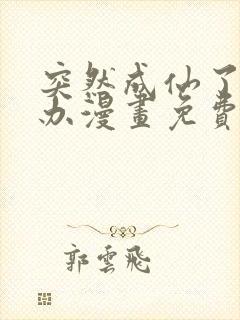 突然成仙了
办漫畫免費
郭雲飛